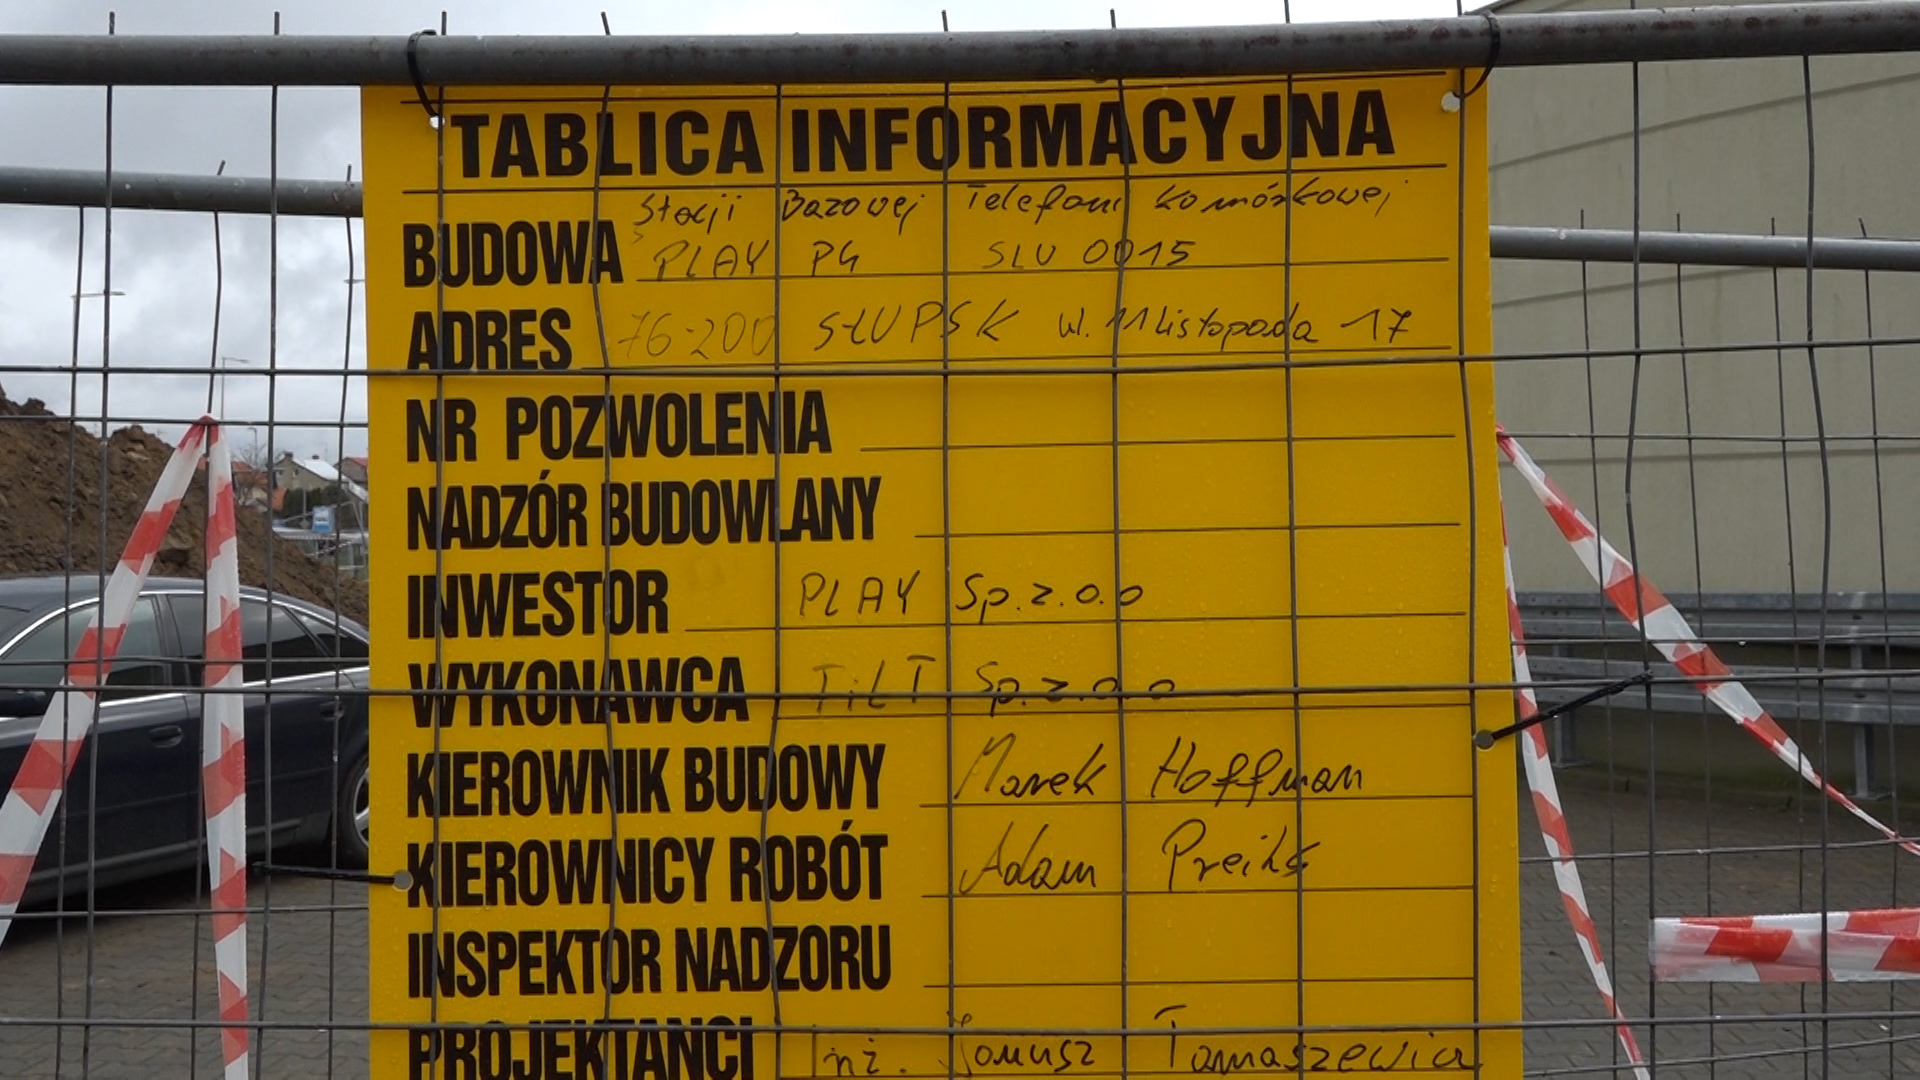 TABLICA INFORMACYJNA
Stacji Bazowej Telefonii Komórkowej
BUDOWA PLAY P4 SLU 0015
ADRES 76-200 SŁUPSK ul. 11 Listopada 17
NR POZWOLENIA
NADZÓR BUDOWLANY
INWESTOR PLAY Sp. z.o.o
WYKONAWCA TiLT Sp. z.o.o
KIEROWNIK BUDOWY Marek Hoffman
KIEROWNICY ROBÓT Adam
INSPEKTOR NADZORU
PROJEKTANCI inż. Janusz Tomaszewicz